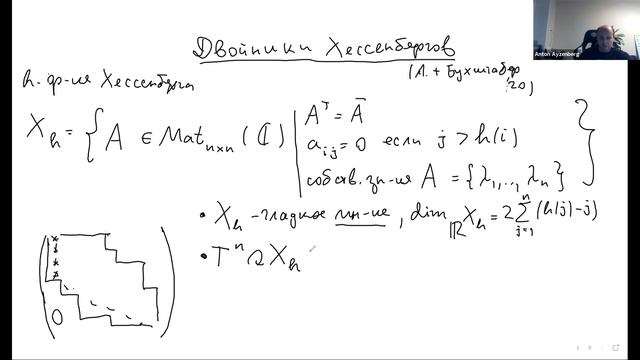 Двойники Хессенбергов
(А. + Бухштабер '20)
h. ф-ия Хессенберга
X_h = { A ∈ Mat_{n×n}(ℂ) | A^T = Ā
a_{ij} = 0 если j > h(i)
собств. зн-ия A = {λ_1,..,λ_n} }
• X_h - гладкое мн-ие, dim_ℝ X_h = 2∑_{j=1}^{n}(h(j)-j)
• T^n ⊃ X_h
* * * *
0
Anton Ayzenberg